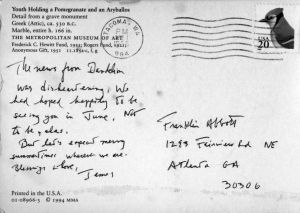 Youth Holding a Pomegranate and an Aryballos
Detail from a grave monument
Greek (Attic), ca. 530 B.C.
Marble, entire h. 166 in.
THE METROPOLITAN MUSEUM OF ART
Frederick C. Hewitt Fund, 1911; Rogers Fund, 1921;
Anonymous Gift, 1951 11.185a-c, f, g
TACOMA, WA
PM
USA
20
The news from
was disheartening. We
had hoped happily to be
seeing you in June. Not
to be, alas.
But let's expect merry
summertimes wherever we are.
Blessings & love,
James
Franklin Abbott
NE
Atlanta GA
30306
Printed in the U.S.A.
01-08966-3 © 1994 MMA